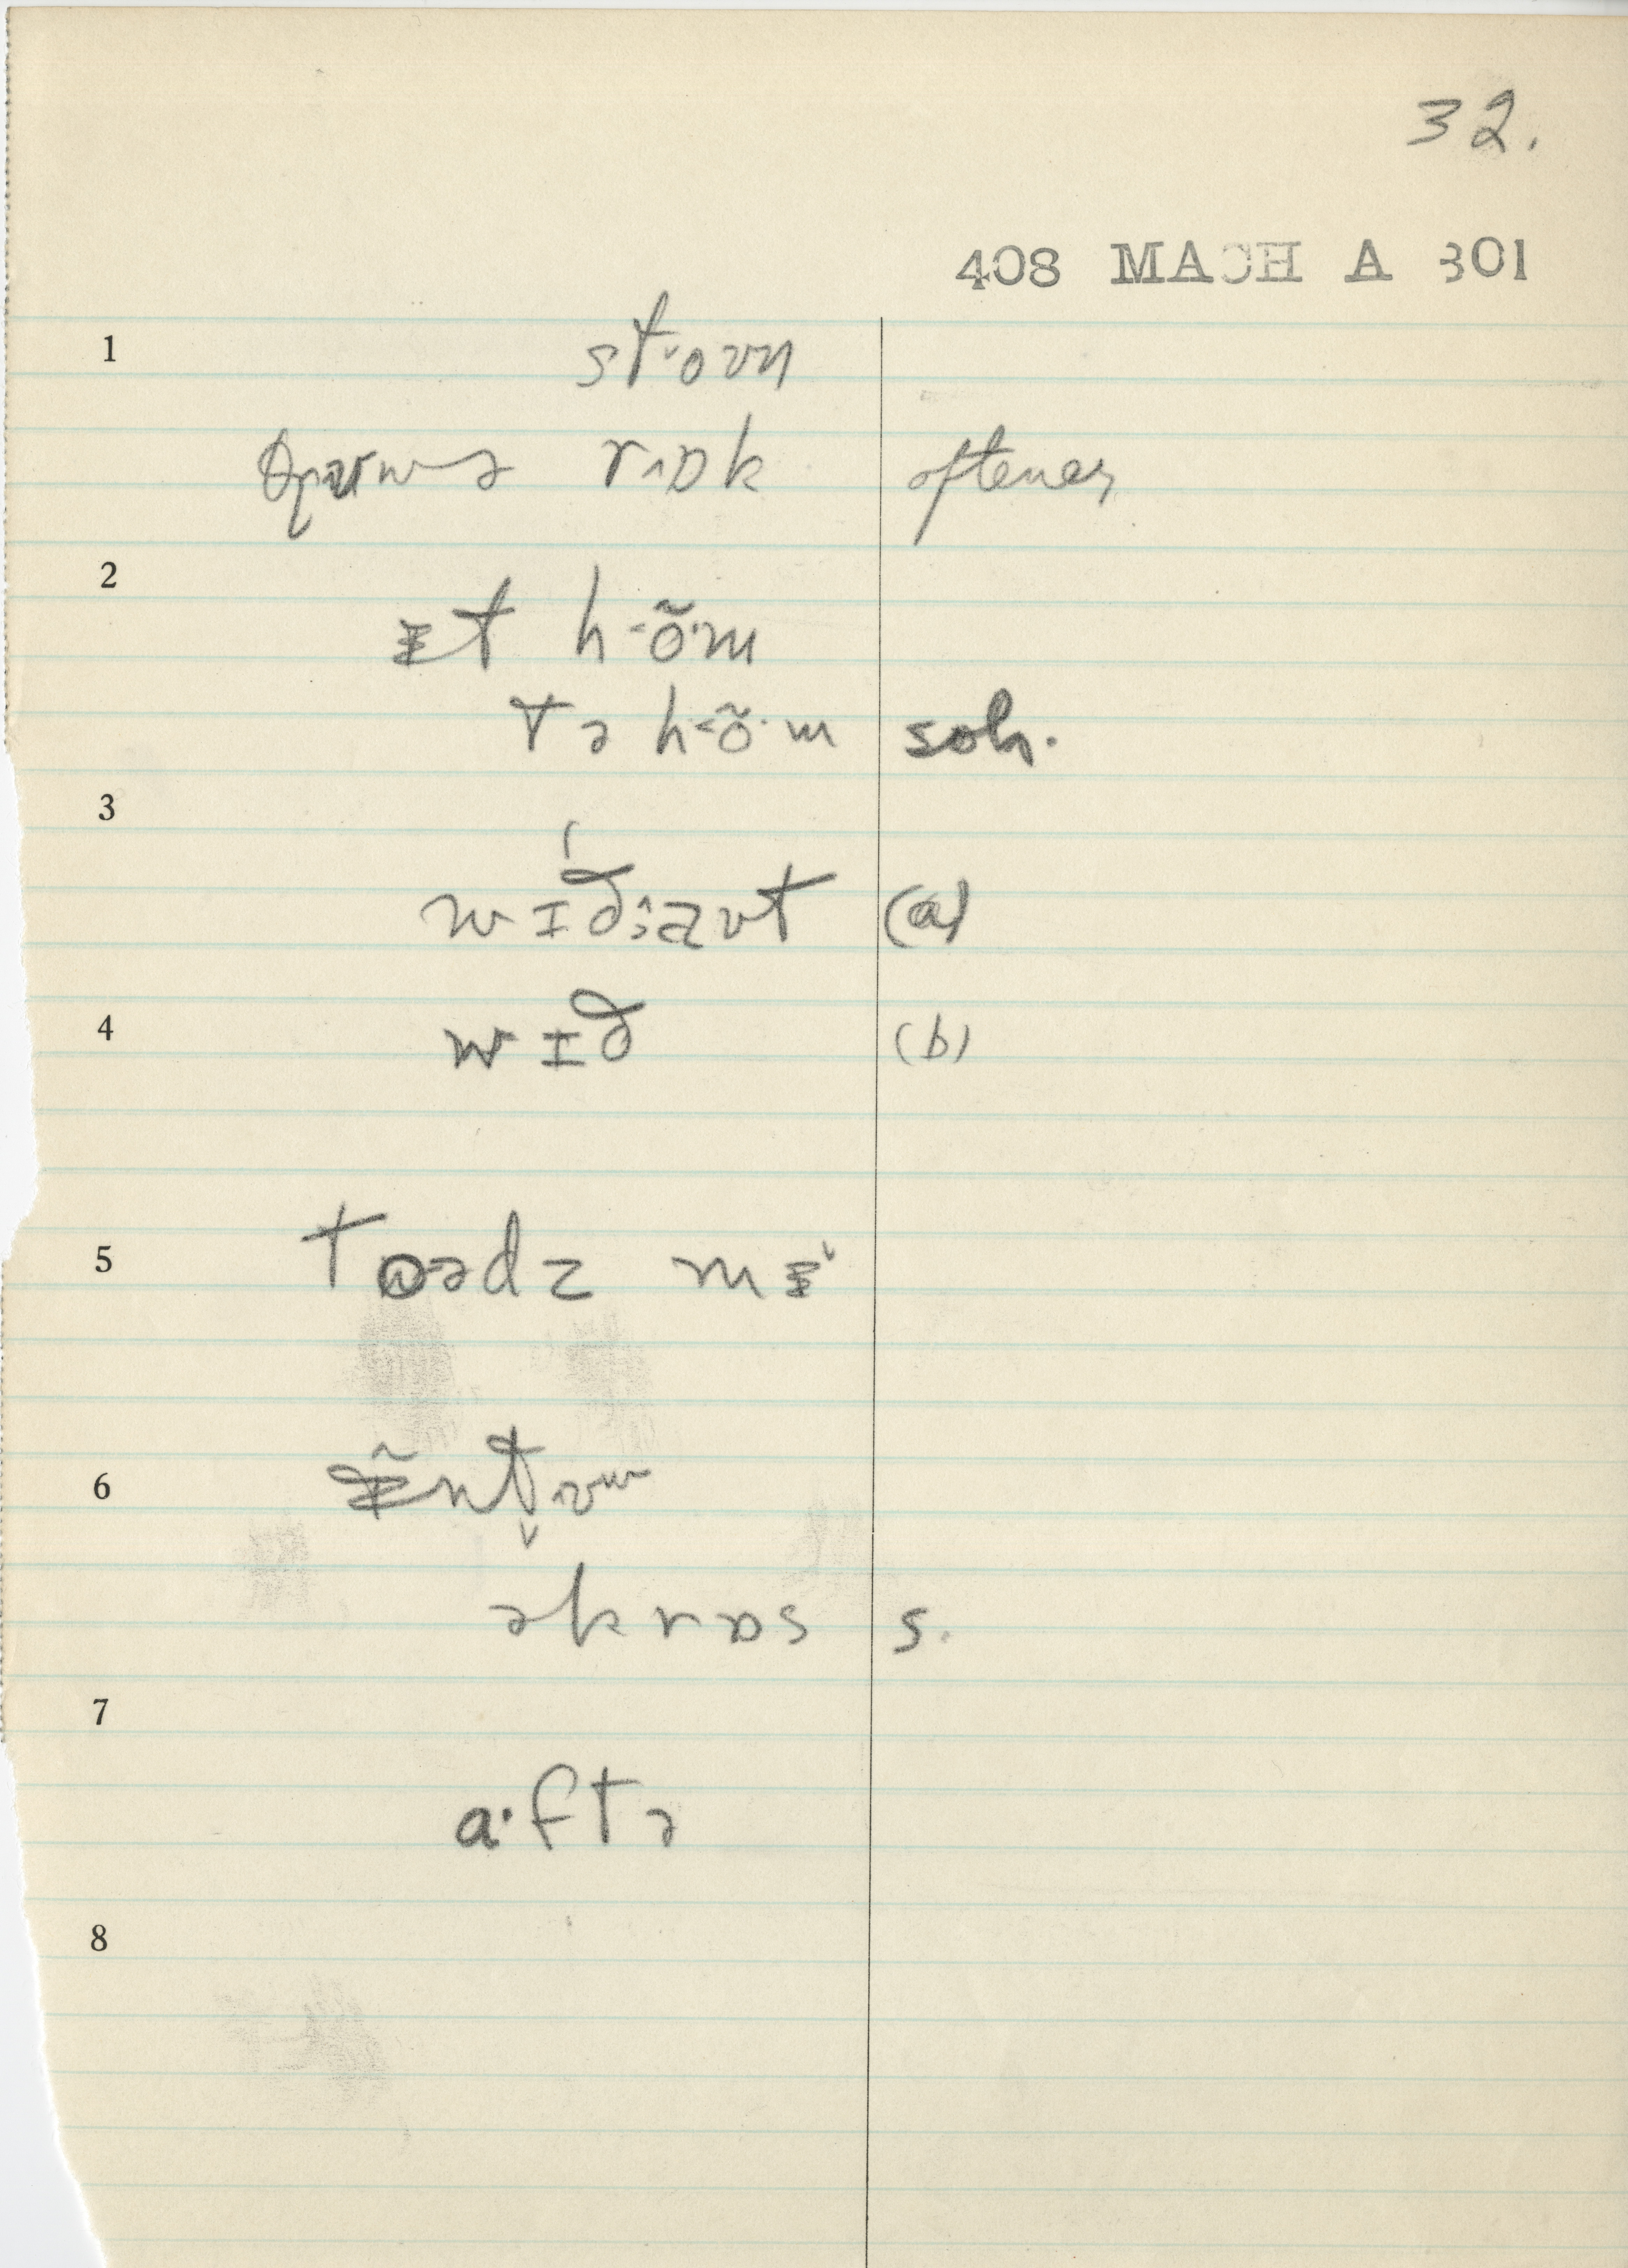 32.
408 MACH A 301
1 st˅oʊn
θrʌʊwə rɒk oftener
2 ɪt h-õ·m
tə h-õ·m soh.
3 wɪð;aʊt (a)
4 wɪð (b)
5 tɒədz mɪ˅
6
əkrɒs s.
7
a·ftə
8